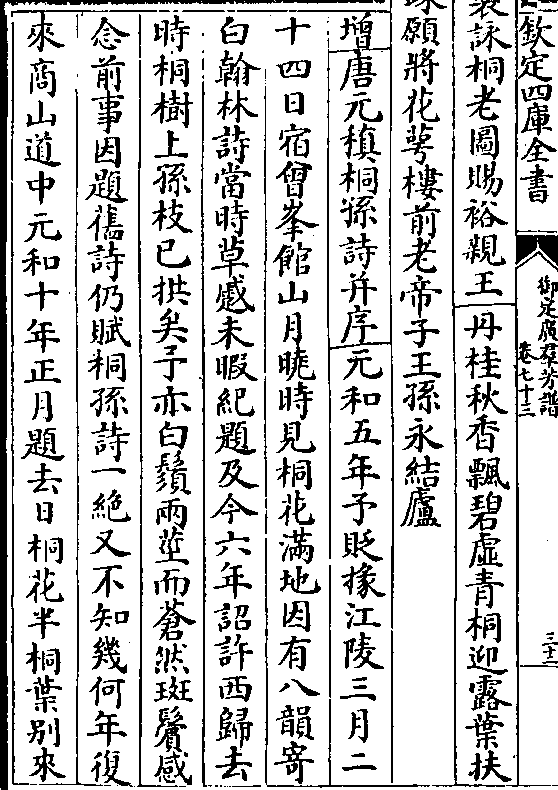 欽定四庫全書
御定廣羣芳譜
卷七十三
三十二
詠桐老圖賜裕親王 丹桂秋香飄碧虛青桐迎露葉扶
願將花萼樓前老帝子王孫永結廬
增唐元稹桐孫詩并序 元和五年予貶掾江陵三月二
十四日宿曾峯館山月曉時見桐花滿地因有八韻寄
白翰林詩當時草蹙未暇紀題及今六年詔許西歸去
時桐樹上孫枝已拱矣予亦白鬚兩莖而蒼然斑鬢感
念前事因題舊詩仍賦桐孫詩一絶又不知幾何年復
來商山道中元和十年正月題去日桐花半桐葉别來